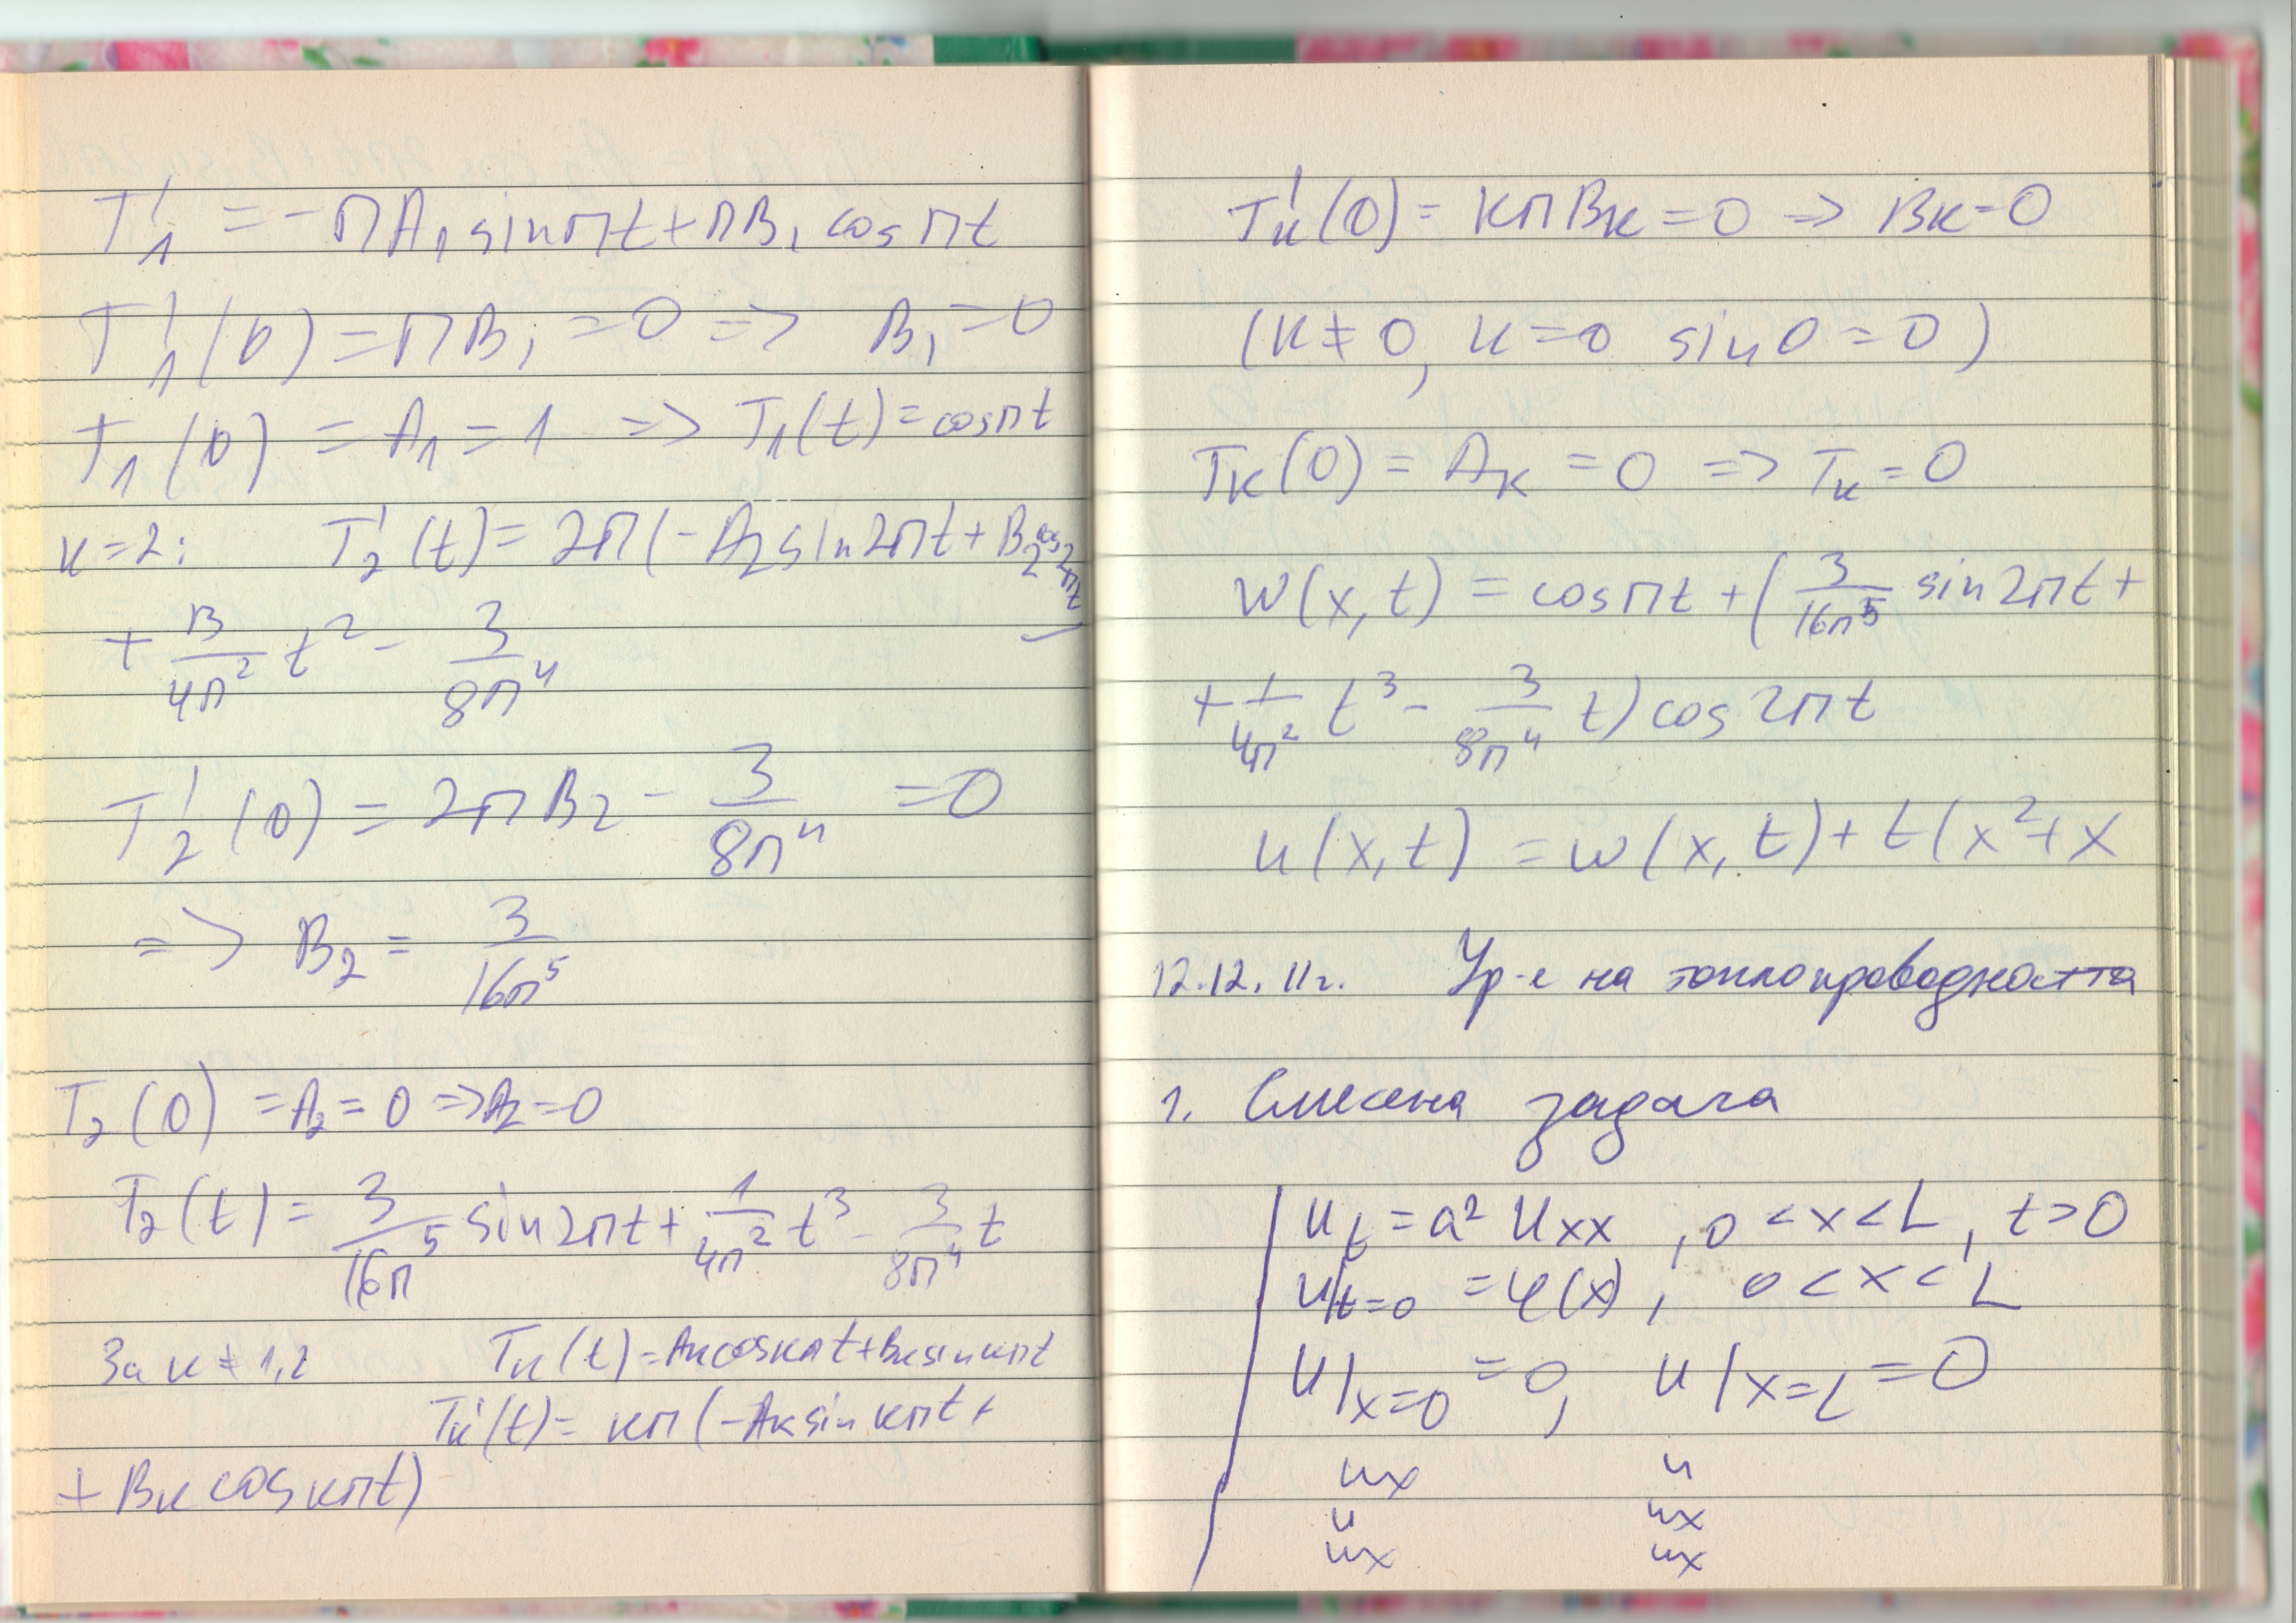 T₁' = -πA₁ sin πt + πB₁ cos πt
T₁'(0) = πB₁ = 0 => B₁ = 0
T₁(0) = A₁ = 1 => T₁(t) = cos πt
к=2: T₂'(t) = 2π(-A₂ sin 2πt + B₂ cos 2πt)
+ 3/4π² t² - 3/8π⁴
T₂'(0) = 2πB₂ - 3/8π⁴ = 0
=> B₂ = 3/16π⁵
T₂(0) = A₂ = 0 => A₂ = 0
T₂(t) = 3/16π⁵ sin 2πt + 1/4π² t³ - 3/8π⁴ t
За к ≠ 1,2 Tк(t) = Aк cos кπt + Bк sin кπt
Tк'(t) = кπ(-Aк sin кπt +
+ Bк cos кπt)
Tк'(0) = кπBк = 0 => Bк = 0
(к ≠ 0, к = 0 sin 0 = 0)
Tк(0) = Aк = 0 => Tк = 0
w(x,t) = cos πt + (3/16π⁵ sin 2πt +
+ 1/4π² t³ - 3/8π⁴ t) cos 2πt
u(x,t) = w(x,t) + t(x² + x
12.12.11г. Ур-е на топлопроводността
1. Смесена задача
u_t = a² u_xx , 0 < x < L , t > 0
u|t=0 = φ(x) , 0 < x < L
u|x=0 = 0, u|x=L = 0
ux u
u ux
ux ux